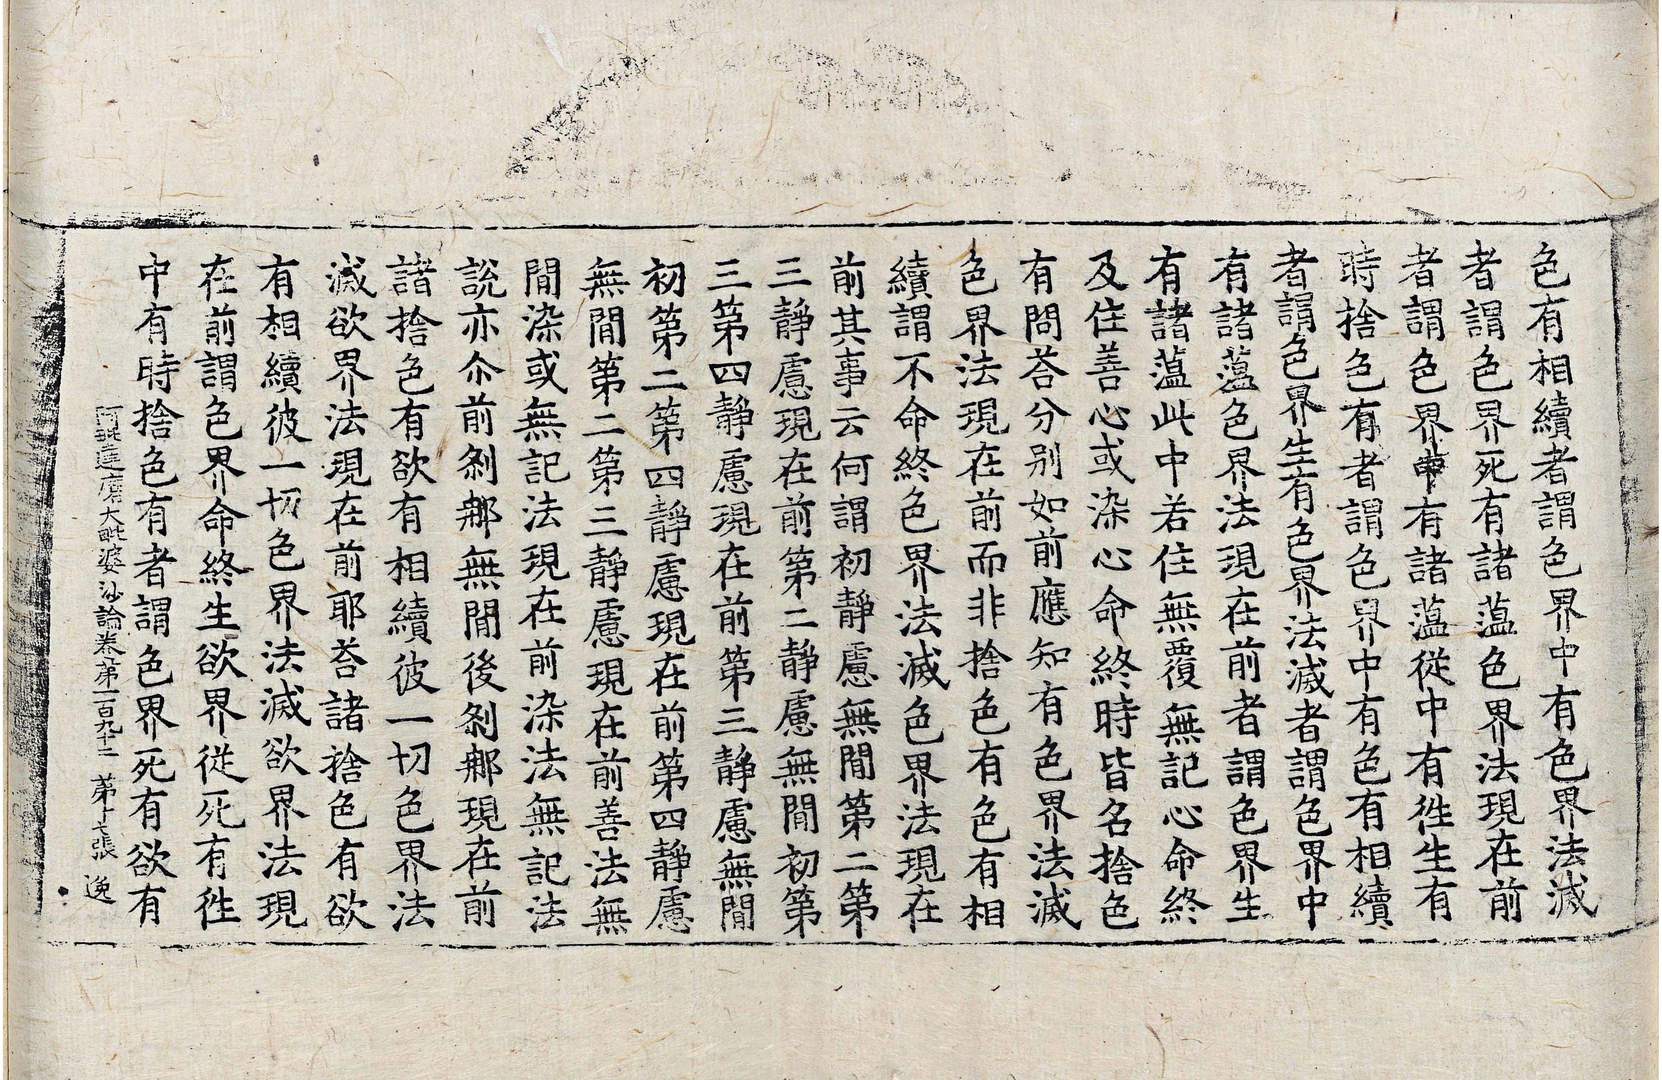 色有相續者謂色界中有色界法滅
者謂色界死有諸薀色界法現在前
者謂色界中有諸薀從中有徃生有
時捨色有者謂色界中有色有相續
者謂色界生有色界法滅者謂色界中
有諸薀色界法現在前者謂色界生
有諸薀此中若住無覆無記心命終
及住善心或染心命終時皆名捨色
有問荅分別如前應知有色界法滅
色界法現在前而非捨色有色有相
續謂不命終色界法滅色界法現在
前其事云何謂初靜慮無閒第二第
三靜慮現在前第二靜慮無閒初第
三第四靜慮現在前第三靜慮無閒
初第二第四靜慮現在前第四靜慮
無閒第二第三靜慮現在前善法無
閒染或無記法現在前染法無記法
說亦尒前刹那無閒後刹那現在前
諸捨色有欲有相續彼一切色界法
滅欲界法現在前耶荅諸捨色有欲
有相續彼一切色界法滅欲界法現
在前謂色界命終生欲界從死有徃
中有時捨色有者謂色界死有欲有
阿毗達磨大毗婆沙論卷第一百九十二 第十七張 逸